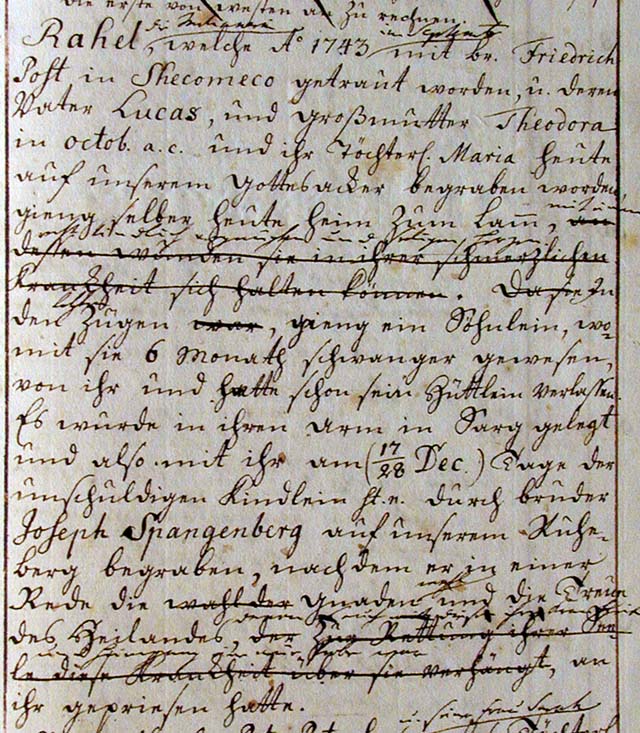 die erste von Westen an zu rechnen.
Rahel, welche Aº 1743 mit br. Friedrich
Post in Shecomeco getraut worden, u. deren
Vater Lucas, und Großmutter Theodora
in octob. a. c. und ihr Töchterl. Maria heute
auf unserem Gottesacker begraben worden
gieng selber heute heim zum Lamm,
dessen Wunden sie in ihrer schmerzlichen
Kranckheit sich halten können. Da sie in
den Zügen war, gieng ein Söhnlein, wo-
mit sie 6 Monath schwanger gewesen,
von ihr und hatte schon sein Hüttlein verlassen.
Es wurde in ihren Arm in Sarg gelegt
und also mit ihr am (17/28 Dec.) Tage der
unschuldigen Kindlein st. v. durch bruder
Joseph Spangenberg auf unserem Ruhe-
berg begraben, nachdem er in einer
Rede die wahl der Gnaden und die Treue
des Heilandes, der zur Rettung ihrer See-
le diese Kranckheit über sie verhängt, an
ihr gepriesen hatte.